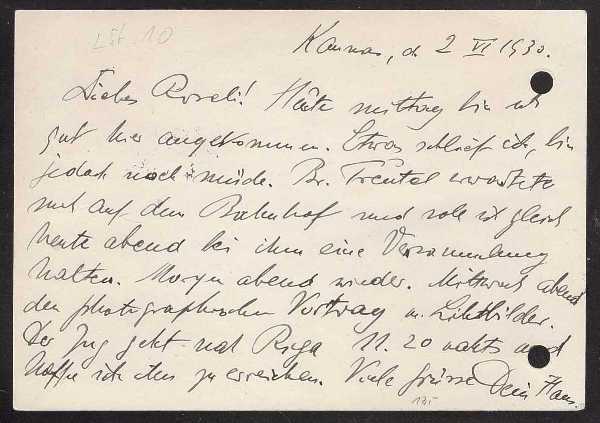 Lit. 10
Kaunas, d. 2 VI 1930.
Liebes Roseli! Heute mittag bin ich
gut hier angekommen. Etwas schlief ich, bin
jedoch noch müde. Br. Frentel erwartete
mich auf dem Bahnhof und soll ich gleich
heute abend bei ihm eine Versammlung
halten. Morgen abend wieder. Mittwoch abend
den photographischen Vortrag m. Lichtbilder.
Der Zug geht nach Riga 11.20 nachts und
hoffe ich ihn zu erreichen. Viele Grüsse Dein Hans.